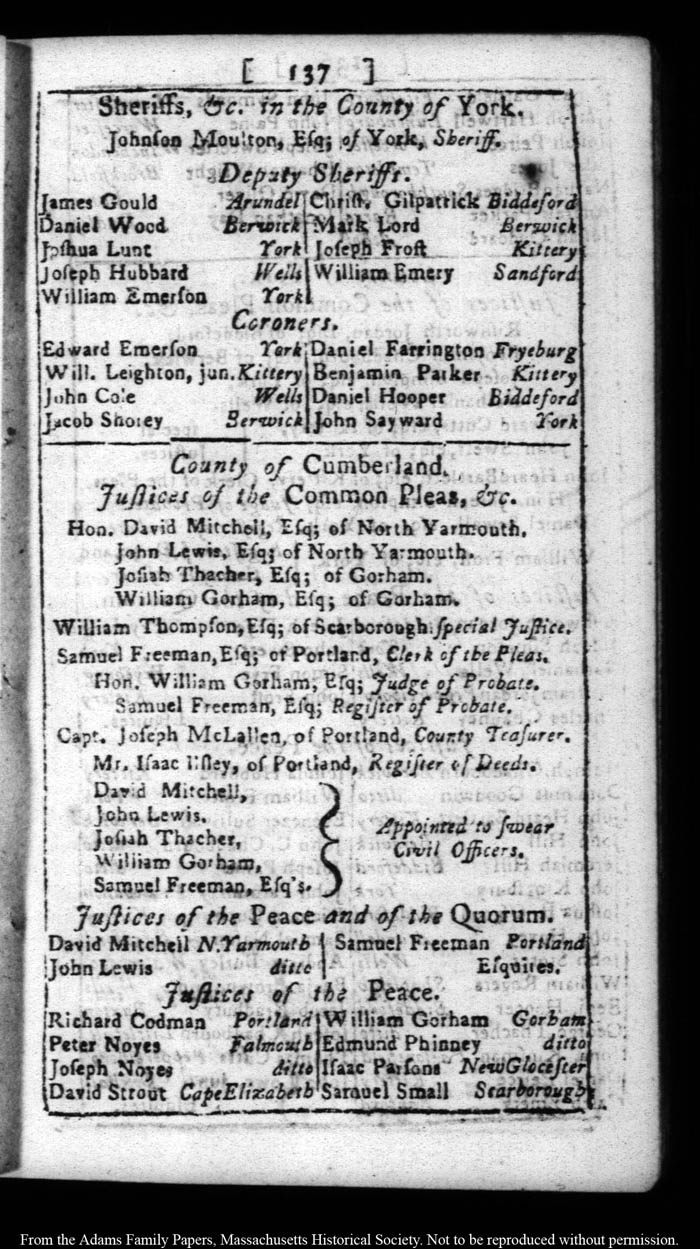 [ 137 ]
Sheriffs, &c. in the County of York.
Johnſon Moulton, Eſq; of York, Sheriff.
Deputy Sheriffs.
James Gould Arundel Chriſt. Gilpatrick Biddeford
Daniel Wood Berwick Mark Lord Berwick
Joſhua Lunt York Joſeph Froſt Kittery
Joſeph Hubbard Wells William Emery Sandford
William Emerſon York
Coroners.
Edward Emerſon York Daniel Farrington Fryeburg
Will. Leighton, jun. Kittery Benjamin Parker Kittery
John Cole Wells Daniel Hooper Biddeford
Jacob Shorey Berwick John Sayward York
County of Cumberland.
Juſtices of the Common Pleas, &c.
Hon. David Mitchell, Eſq; of North Yarmouth.
John Lewis, Eſq; of North Yarmouth.
Joſiah Thacher, Eſq; of Gorham.
William Gorham, Eſq; of Gorham.
William Thompſon, Eſq; of Scarborough ſpecial Juſtice.
Samuel Freeman, Eſq; of Portland, Clerk of the Pleas.
Hon. William Gorham, Eſq; Judge of Probate.
Samuel Freeman, Eſq; Regiſter of Probate.
Capt. Joſeph McLallen, of Portland, County Teaſurer.
Mr. Iſaac Ilſley, of Portland, Regiſter of Deeds.
David Mitchell,
John Lewis.
Joſiah Thacher,
William Gorham,
Samuel Freeman, Eſq's.
Appointed to ſwear
Civil Officers.
Juſtices of the Peace and of the Quorum.
David Mitchell N. Yarmouth Samuel Freeman Portland
John Lewis ditto Eſquires.
Juſtices of the Peace.
Richard Codman Portland William Gorham Gorham
Peter Noyes Falmouth Edmund Phinney ditto
Joſeph Noyes ditto Iſaac Parſons New Gloceſter
David Strout Cape Elizabeth Samuel Small Scarborough
From the Adams Family Papers, Massachusetts Historical Society. Not to be reproduced without permission.